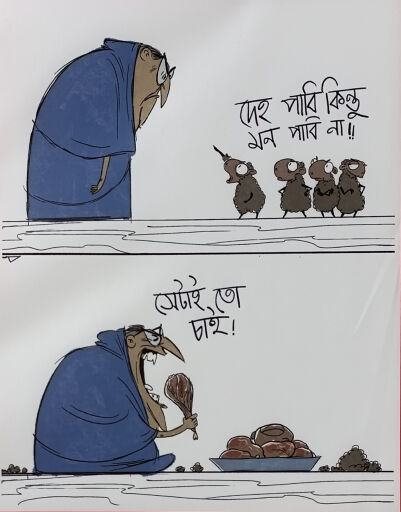 দেহ পাবি কিন্তু
মন পাবি না!!
সেটাই তো
চাই!